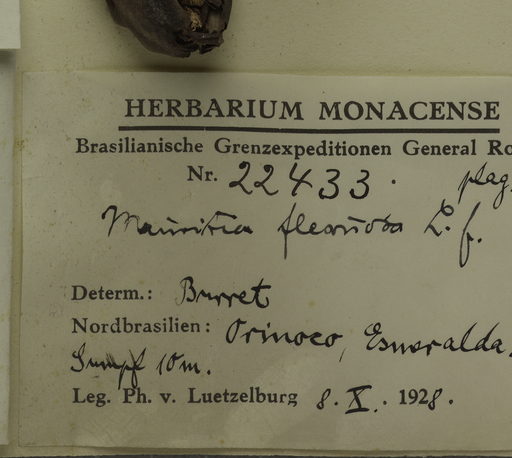 HERBARIUM MONACENSE
Brasilianische Grenzexpeditionen General Ro
Nr. 22433. plag.
Mauritia flexuosa L. f.
Determ.: Burret
Nordbrasilien: Orinoco, Esmeralda.
Sumpf 10 m.
Leg. Ph. v. Luetzelburg 8. X. 1928.